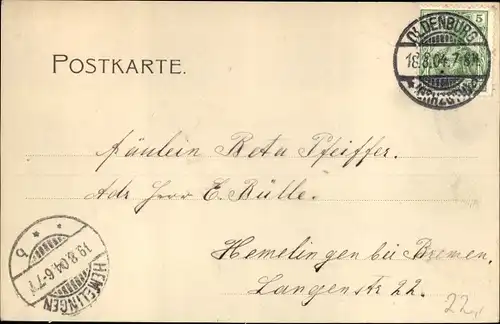 5
OLDENBURG
18.8.04.7-8N
GRHZGTHM.
POSTKARTE.
Fräulein Beta Pfeiffer.
Adr Herr E. Bülle.
Hemelingen bei Bremen.
Langenstr 22.
HEMELINGEN
19.8.04.6-7V
b
22,-